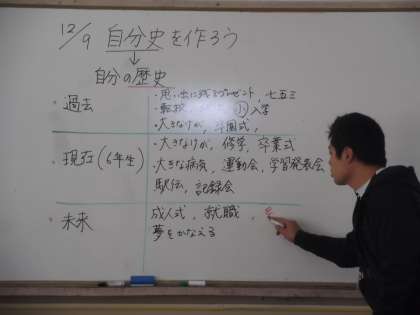 12/9 自分史を作ろう
自分の歴史
・過去
・思い出に残るプレゼント、七五三
・転校、 小 入学
・大きなけが、卒園式、
・現在(6年生)
・大きなけが、修学、卒業式
・大きな病気、運動会、学習発表会
駅伝、記録会
・未来
成人式、就職、
夢をかなえる